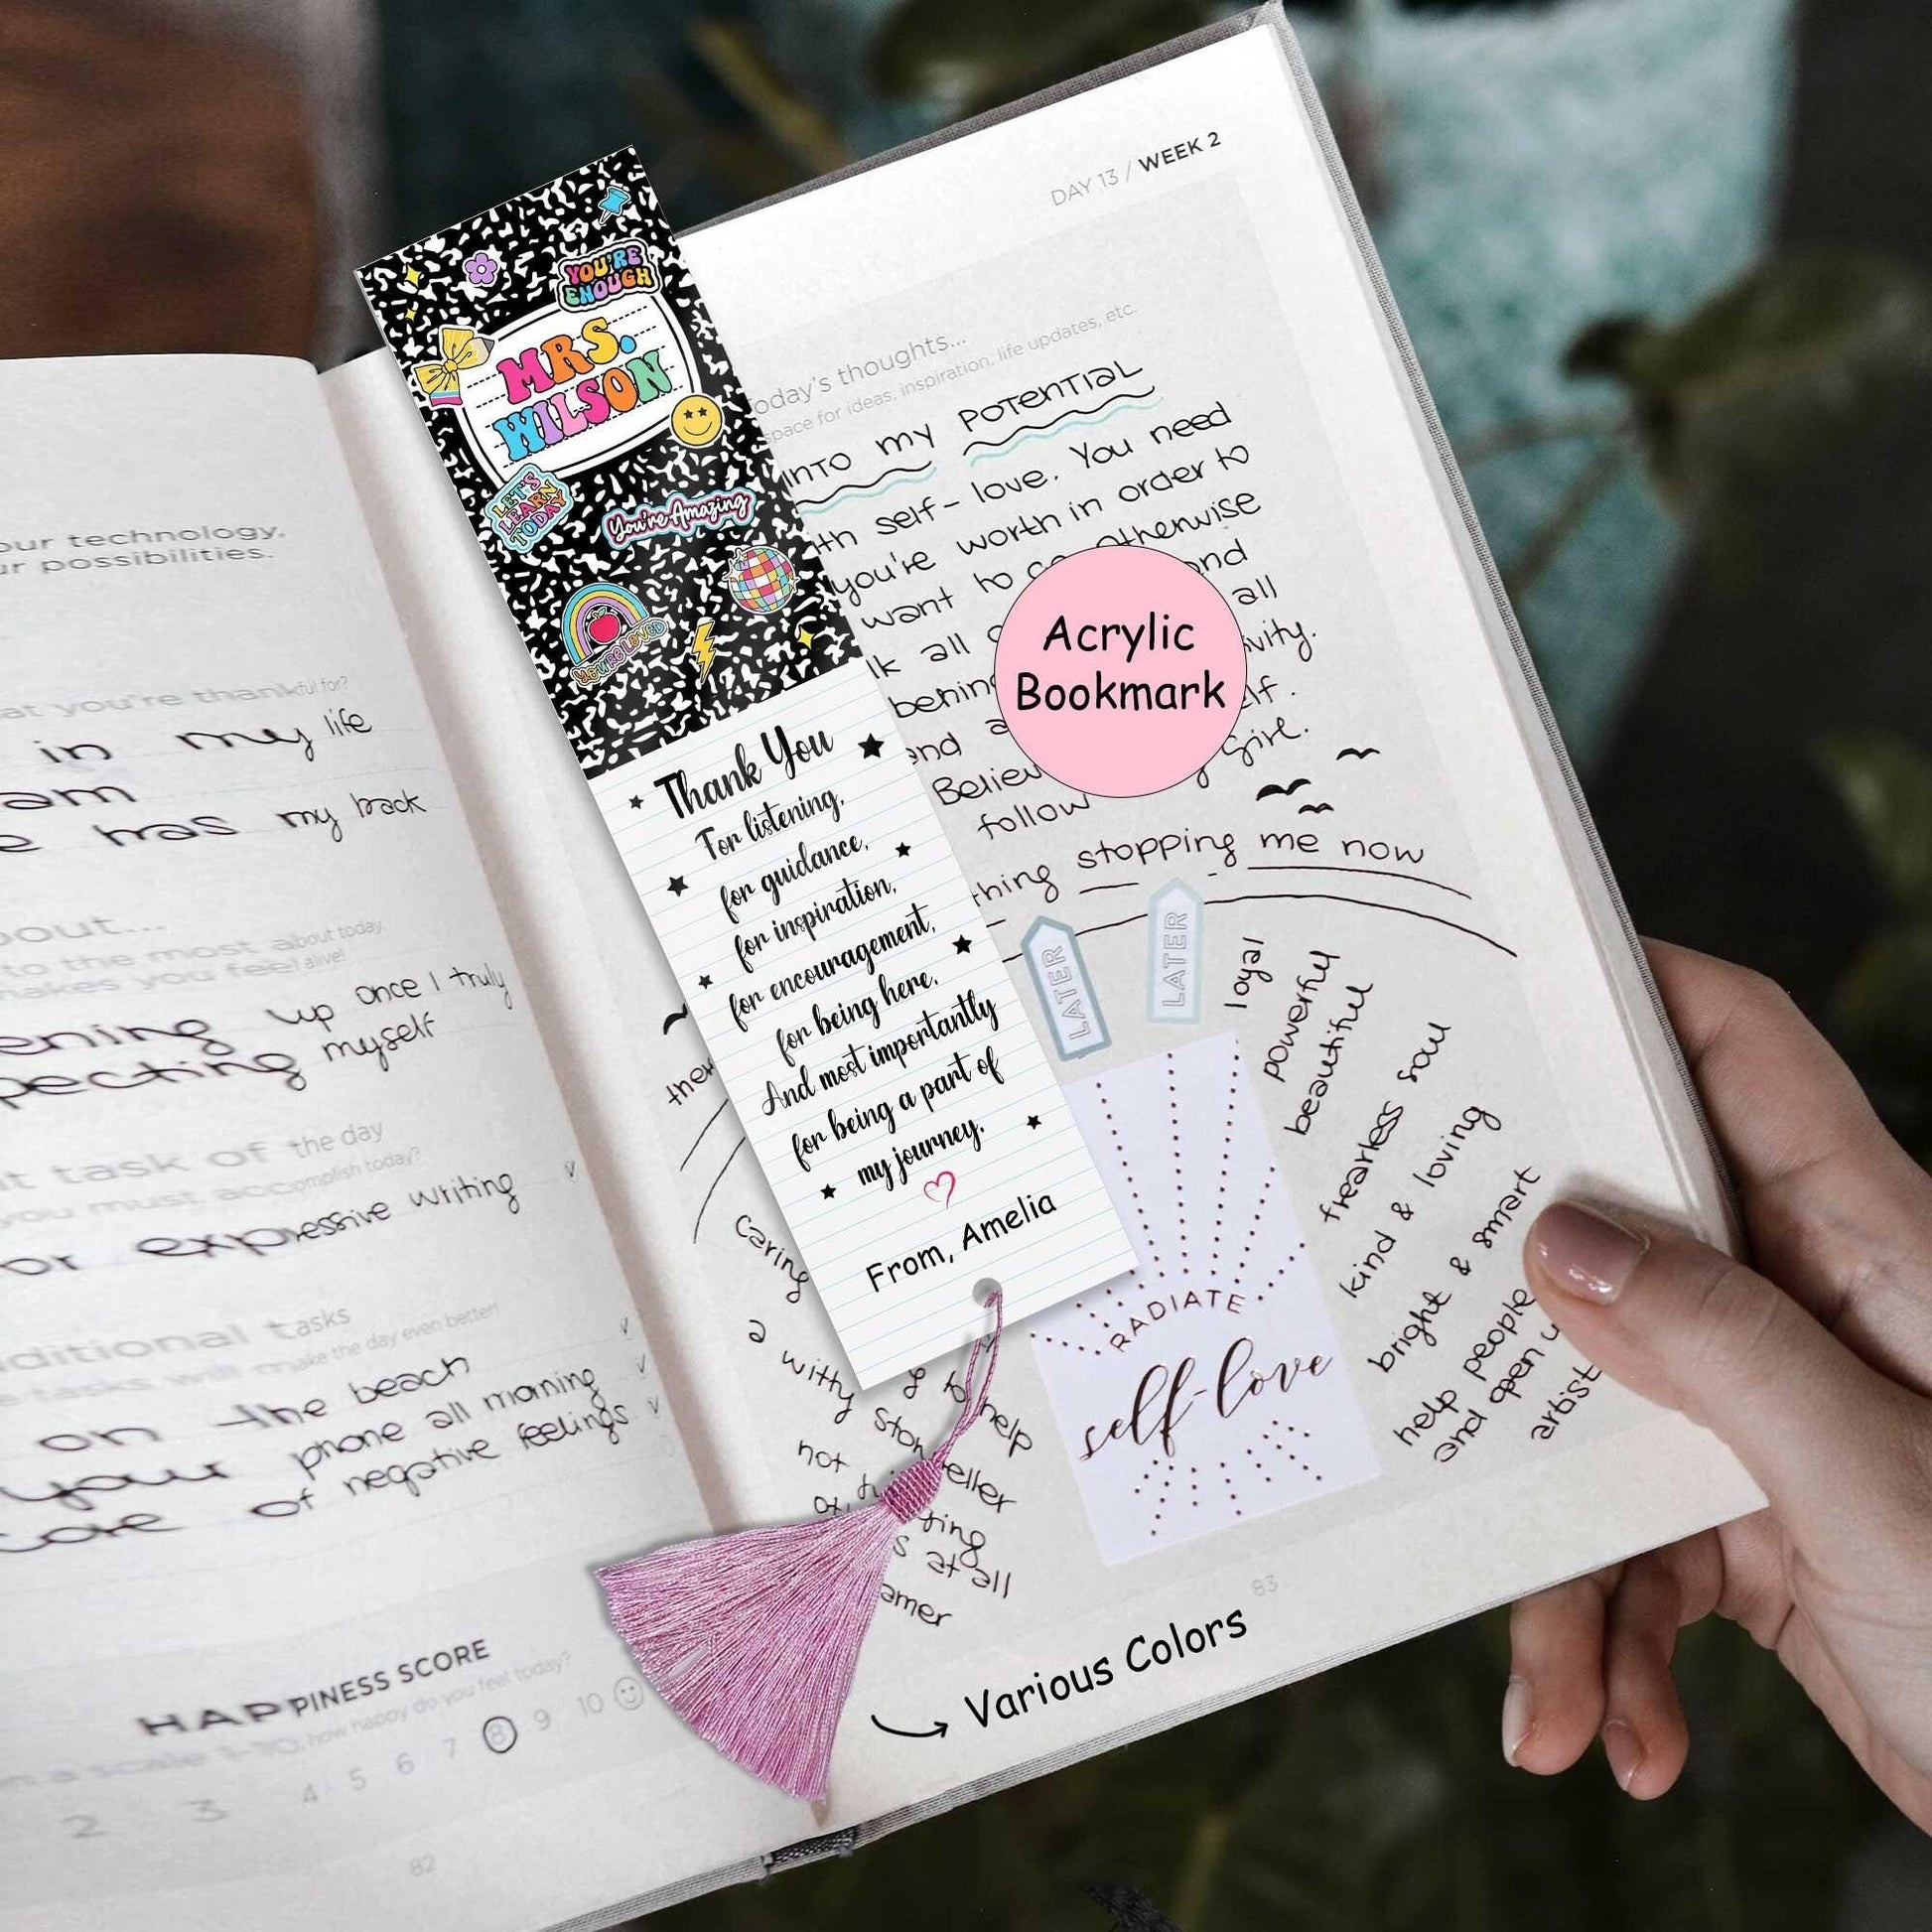 YOU'RE
ENOUGH
MRS.
WILSON
LET'S
LEARN
TODAY
You're Amazing
YOU'RE LOVED
Thank You
For listening,
for guidance,
for inspiration,
for encouragement,
for being here.
And most importantly
for being a part of
my journey.
From, Amelia
Acrylic
Bookmark
Various Colors
our technology,
possibilities.
at you're thankful for?
in my life
am
has my back
bout...
to the most about today,
makes you feel alive!
up once I truly
myself
task of the day
you must accomplish today?
or expressive writing
ditional tasks
tasks will make the day even better!
on the beach
your phone all morning
care of negative feelings
HAPPINESS SCORE
on a scale 1-10, how happy do you feel today?
2 3 4 5 6 7 8 9 10
82
DAY 13 / WEEK 2
oday's thoughts...
space for ideas, inspiration, life updates, etc.
INTO my POTENTIAL
self-love. You need
you're worth in order to
want to otherwise
and
all all
behind
end
Believe girl.
follow
stopping me now
LATER
LATER
loyal
powerful
beautiful
fearless soul
kind & loving
bright & smart
help people
and open
artist
caring
a witty storyteller
help
not
at all
RADIATE
self-love
83